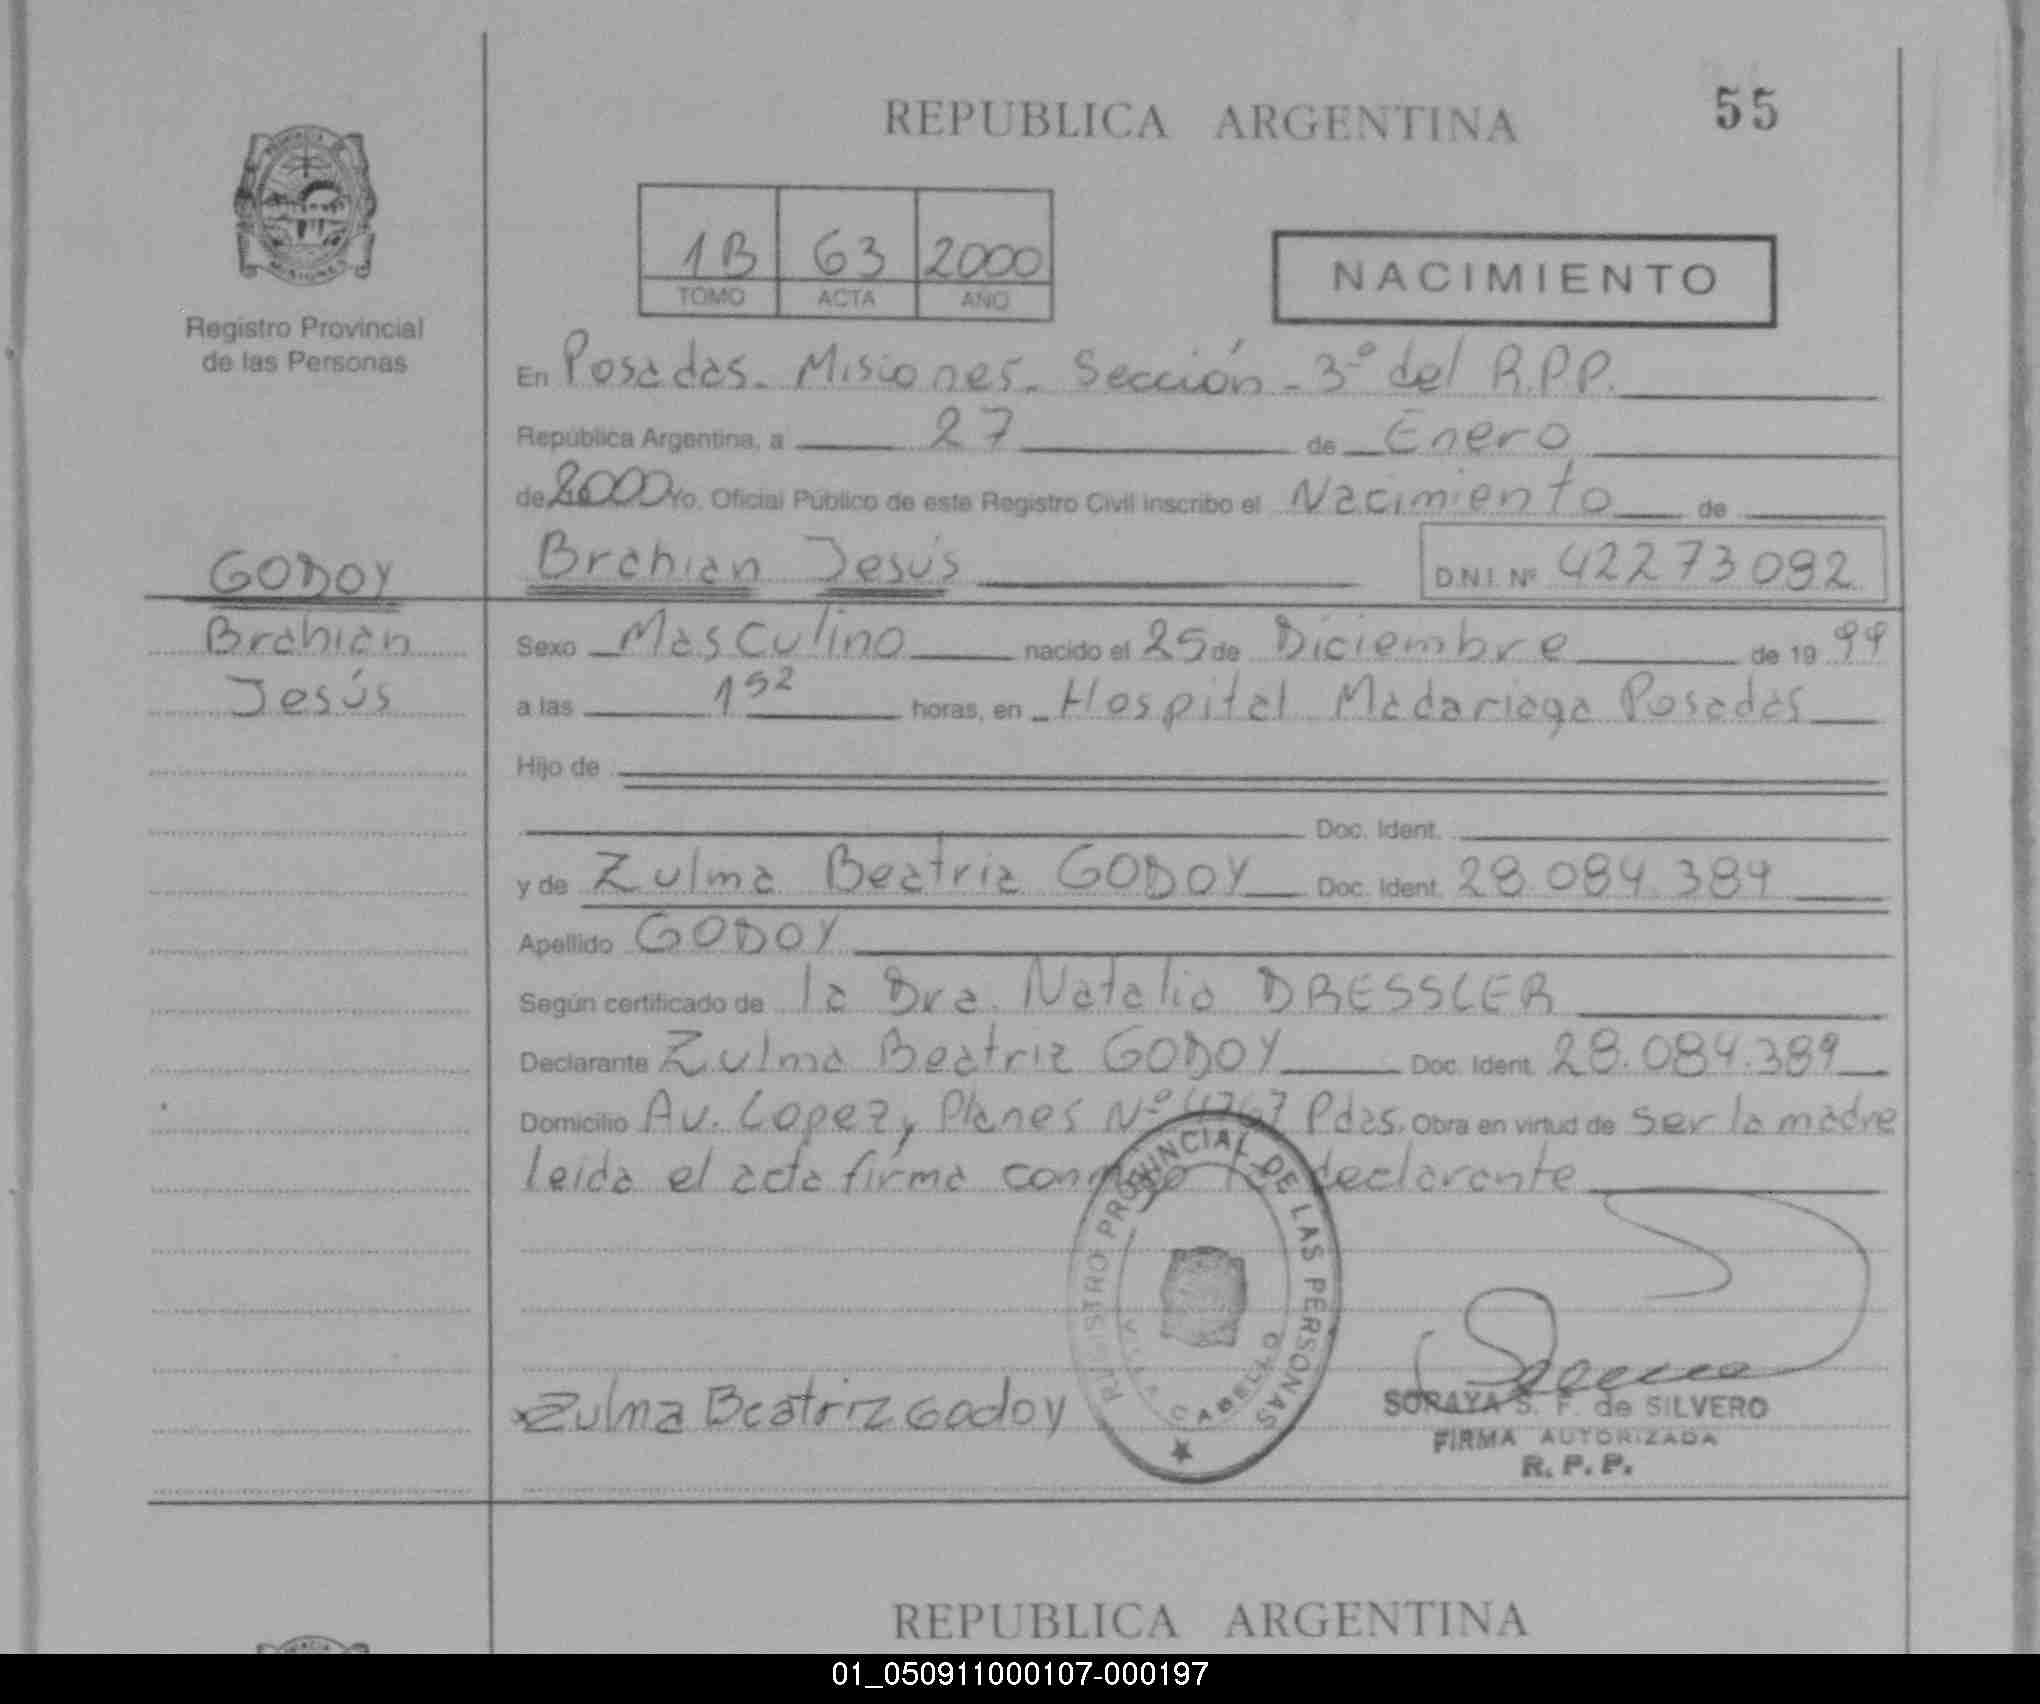 REPUBLICA ARGENTINA
55
1B 63 2000
TOMO ACTA AÑO
NACIMIENTO
Registro Provincial
de las Personas
En Posadas. Misiones. Sección - 3º del R.P.P.
República Argentina, a 27 de Enero
de 2000 Yo, Oficial Público de este Registro Civil inscribo el Nacimiento de
GODOY
Brahian Jesús
D.N.I. Nº 42273092
Brahian
Jesús
Sexo Masculino nacido el 25 de Diciembre de 19 99
a las 1 52 horas, en Hospital Madariaga Posadas
Hijo de
Doc. Ident.
y de Zulma Beatriz GODOY Doc. Ident. 28.084.389
Apellido GODOY
Según certificado de la Dra. Natalia DRESSLER
Declarante Zulma Beatriz GODOY Doc. Ident. 28.084.389
Domicilio Av. Lopez y Planes Nº Pdas. Obra en virtud de ser la madre
leida el acta firma declarante
REGISTRO PROVINCIAL DE LAS PERSONAS
VILLA CABELLO
Zulma Beatriz Godoy
SORAYA S. F. de SILVERO
FIRMA AUTORIZADA
R. P. P.
REPUBLICA ARGENTINA
01_050911000107-000197